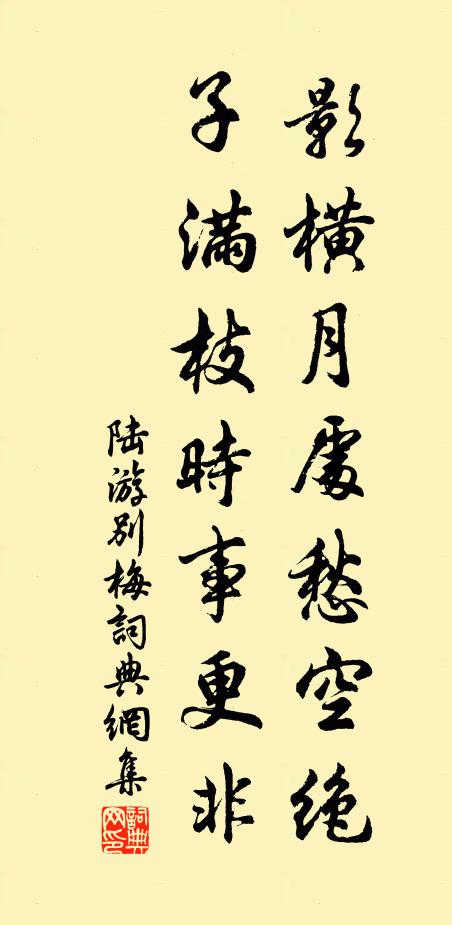 影橫月處愁空絶
子滿枝時事更非
陸游別梅詞典網集
詞典网印